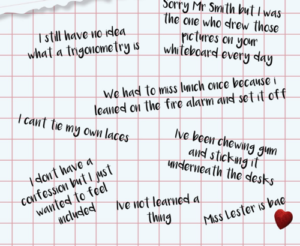 Sorry Mr Smith but I was
the one who drew those
pictures on your
whiteboard every day
I still have no idea
what a trigonometry is
We had to miss lunch once because i
leaned on the fire alarm and set it off
I can't tie my own laces
Ive been chewing gum
and sticking it
underneath the desks
I dont have a
confession but I just
wanted to feel
included
Ive not learned a
thing
Miss Lester is bae